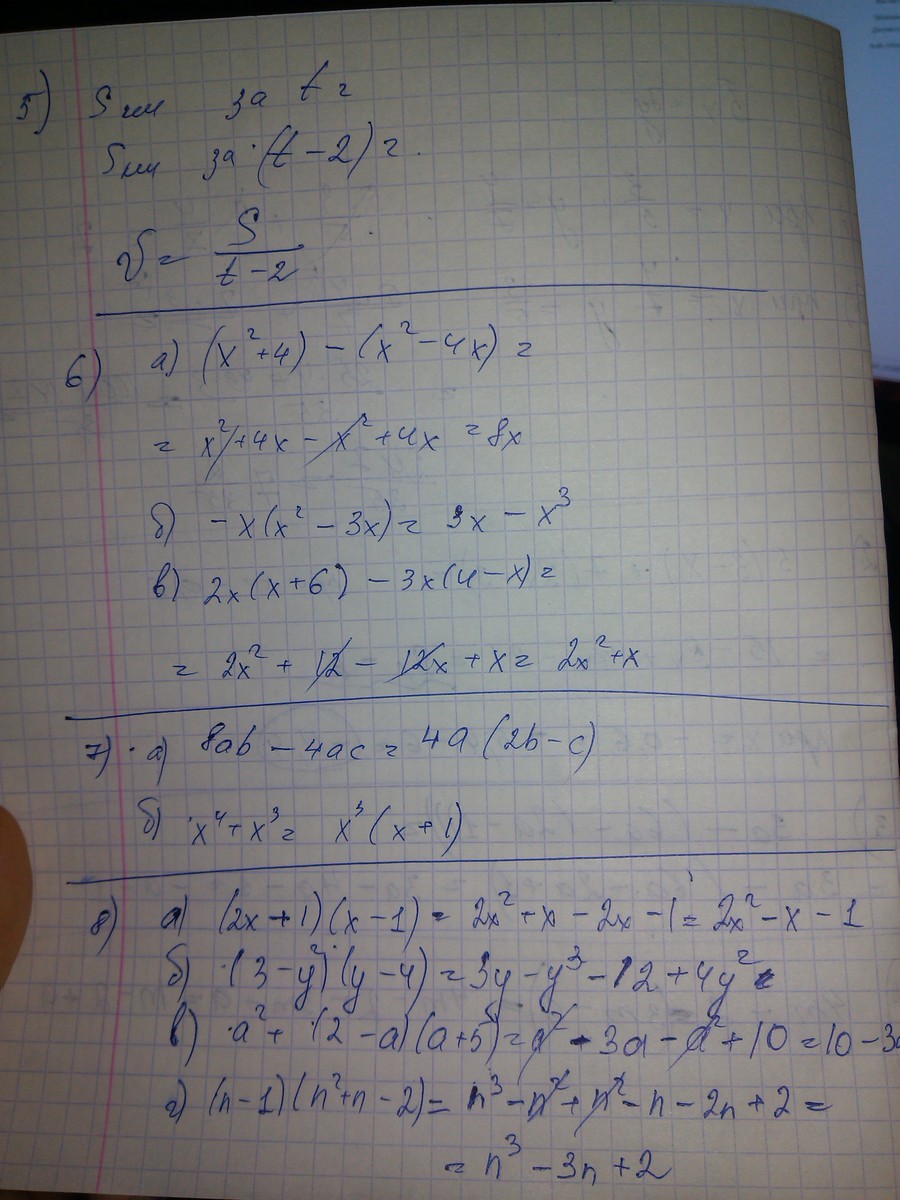 5) S км за t г
S км за (t - 2) г.
v = S / (t - 2)
6) а) (x² + 4) - (x² - 4x) =
= x² + 4x - x² + 4x = 8x
б) -x(x² - 3x) = 3x - x³
в) 2x(x + 6) - 3x(4 - x) =
= 2x² + 12 - 12x + x = 2x² + x
7) а) 8ab - 4ac = 4a(2b - c)
б) x⁴ + x³ = x³(x + 1)
8) а) (2x + 1)(x - 1) = 2x² + x - 2x - 1 = 2x² - x - 1
б) (3 - y²)(y - 4) = 3y - y³ - 12 + 4y²
в) a² + (2 - a)(a + 5) = a² - 3a - a² + 10 = 10 - 3a
г) (n - 1)(n² + n - 2) = n³ - n² + n² - n - 2n + 2 =
= n³ - 3n + 2